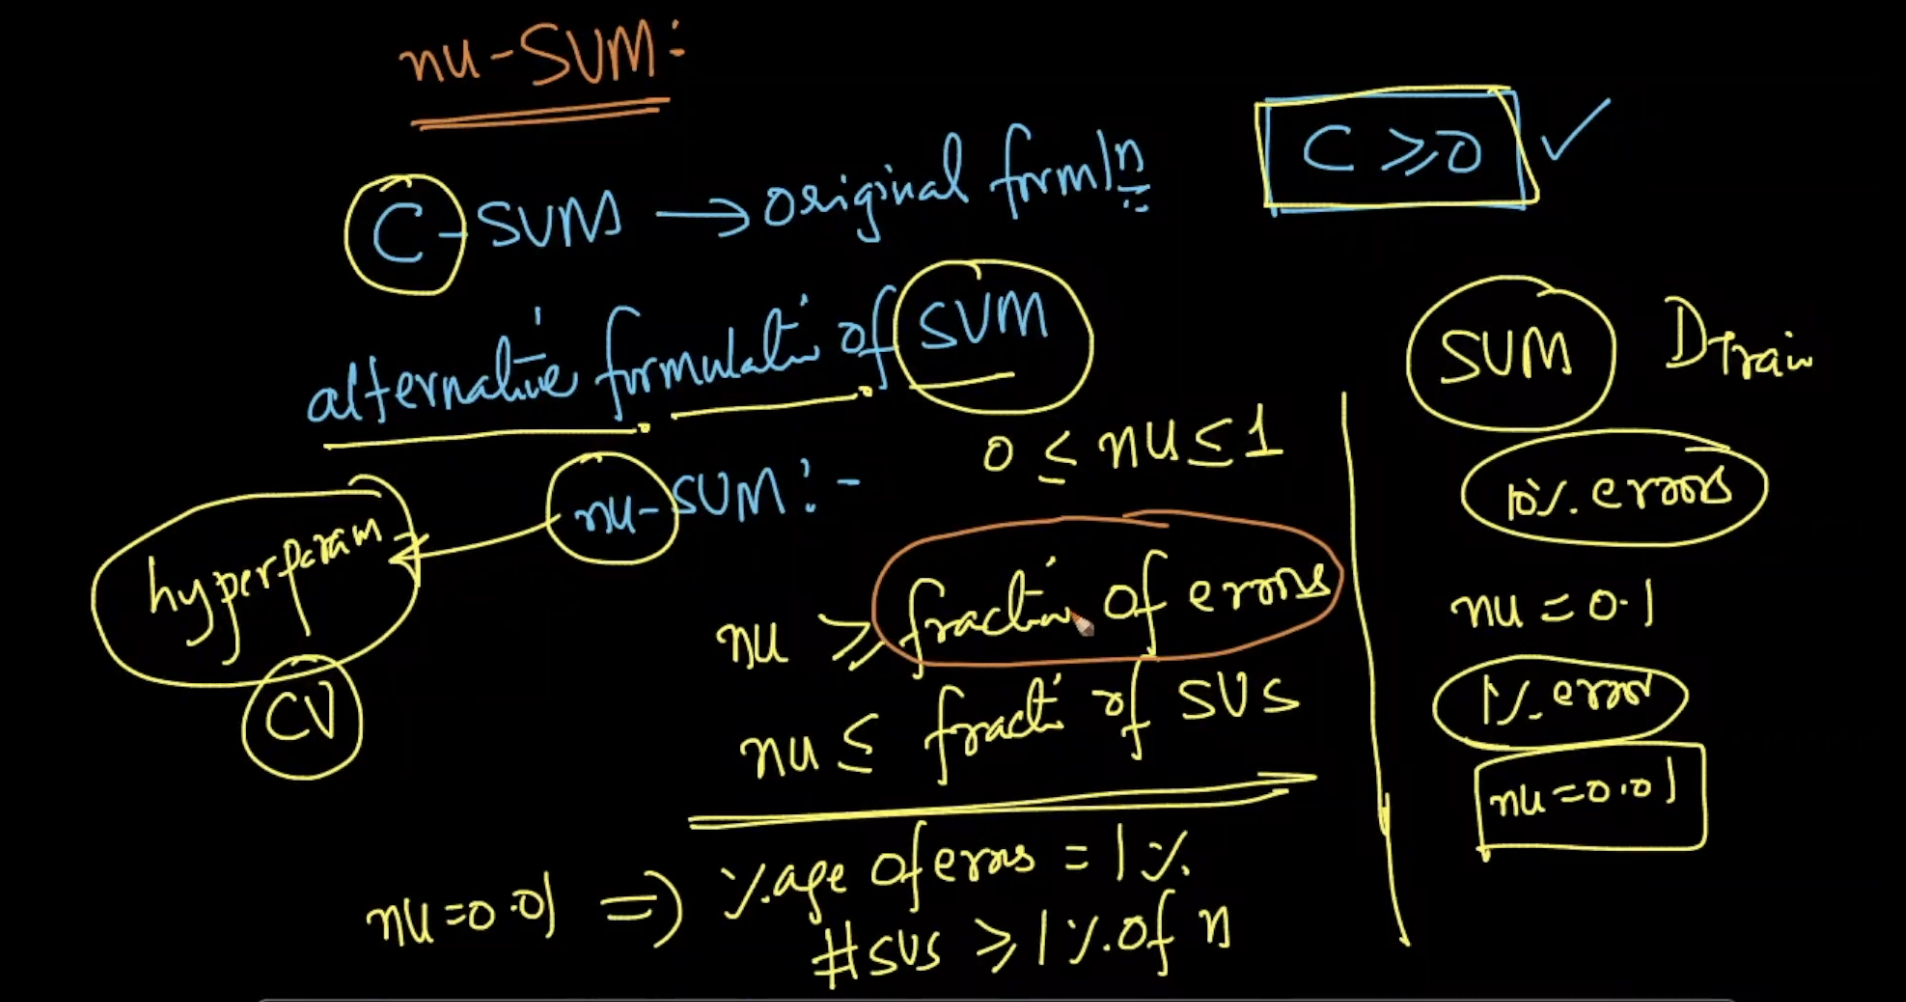 nu-SVM:
C-SVM → original form|n
C ≥ 0 ✓
alternative formulati of SVM
nu-SVM:-
0 ≤ nu ≤ 1
hyperparam
CV
nu ≥ fraction of errors
nu ≤ fracti of SVs
nu=0.01 => %age of errors = 1%
#SVs ≥ 1% of n
SVM DTrain
10% errors
nu = 0.1
1% error
nu=0.01